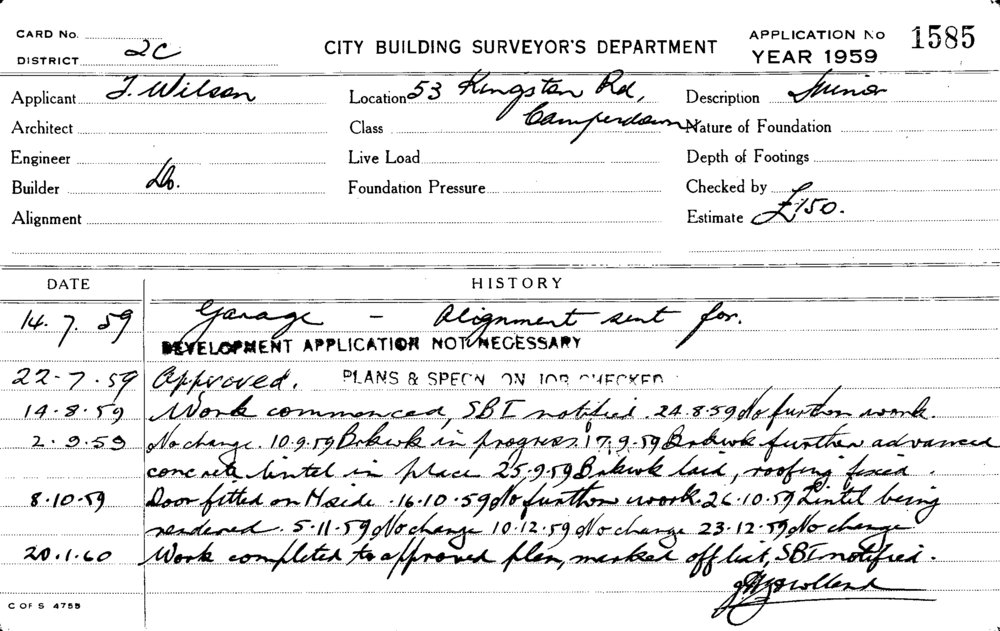 CARD No.
DISTRICT 2C
CITY BUILDING SURVEYOR'S DEPARTMENT
APPLICATION No 1585
YEAR 1959
Applicant J. Wilson
Location 53 Kingston Rd,
Camperdown
Description Minor
Architect
Class
Nature of Foundation
Engineer
Live Load
Depth of Footings
Builder Do.
Foundation Pressure
Checked by
Alignment
Estimate £150.
DATE HISTORY
14.7.59 Garage - Alignment sent for.
DEVELOPMENT APPLICATION NOT NECESSARY
22-7-59 Approved. PLANS & SPECN ON JOB CHECKED
14-8-59 Work commenced, SBI notified. 24.8.59 No further work.
2.9.59 No change. 10.9.59 Brkwk in progress. 17.9.59 Brkwk further advanced
concrete lintel in place 25.9.59 Brkwk laid, roofing fixed.
8.10.59 Door fitted on N side. 16.10.59 No further work. 26.10.59 Lintel being
rendered. 5.11.59 No change 10.12.59 No change 23.12.59 No change
20.1.60 Work completed to approved plan, marked off list, SBI notified.
Holland
C OF S 4755